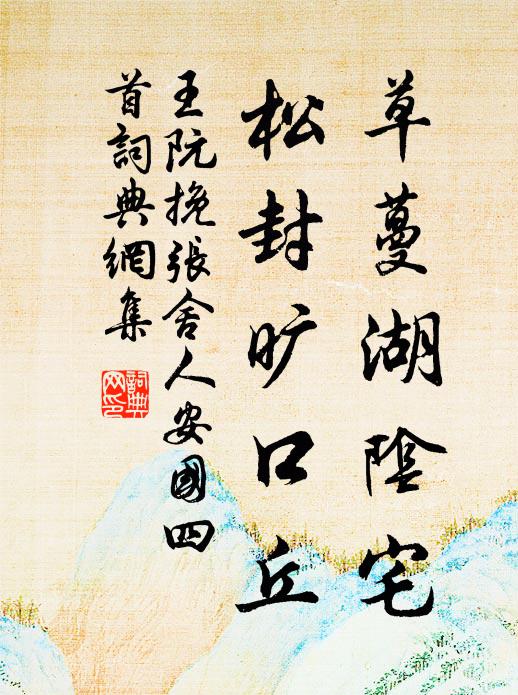 草蔓湖陰宅
松封旷口丘
王阮挽張舍人安國四
首詞典網集
詞典
网印